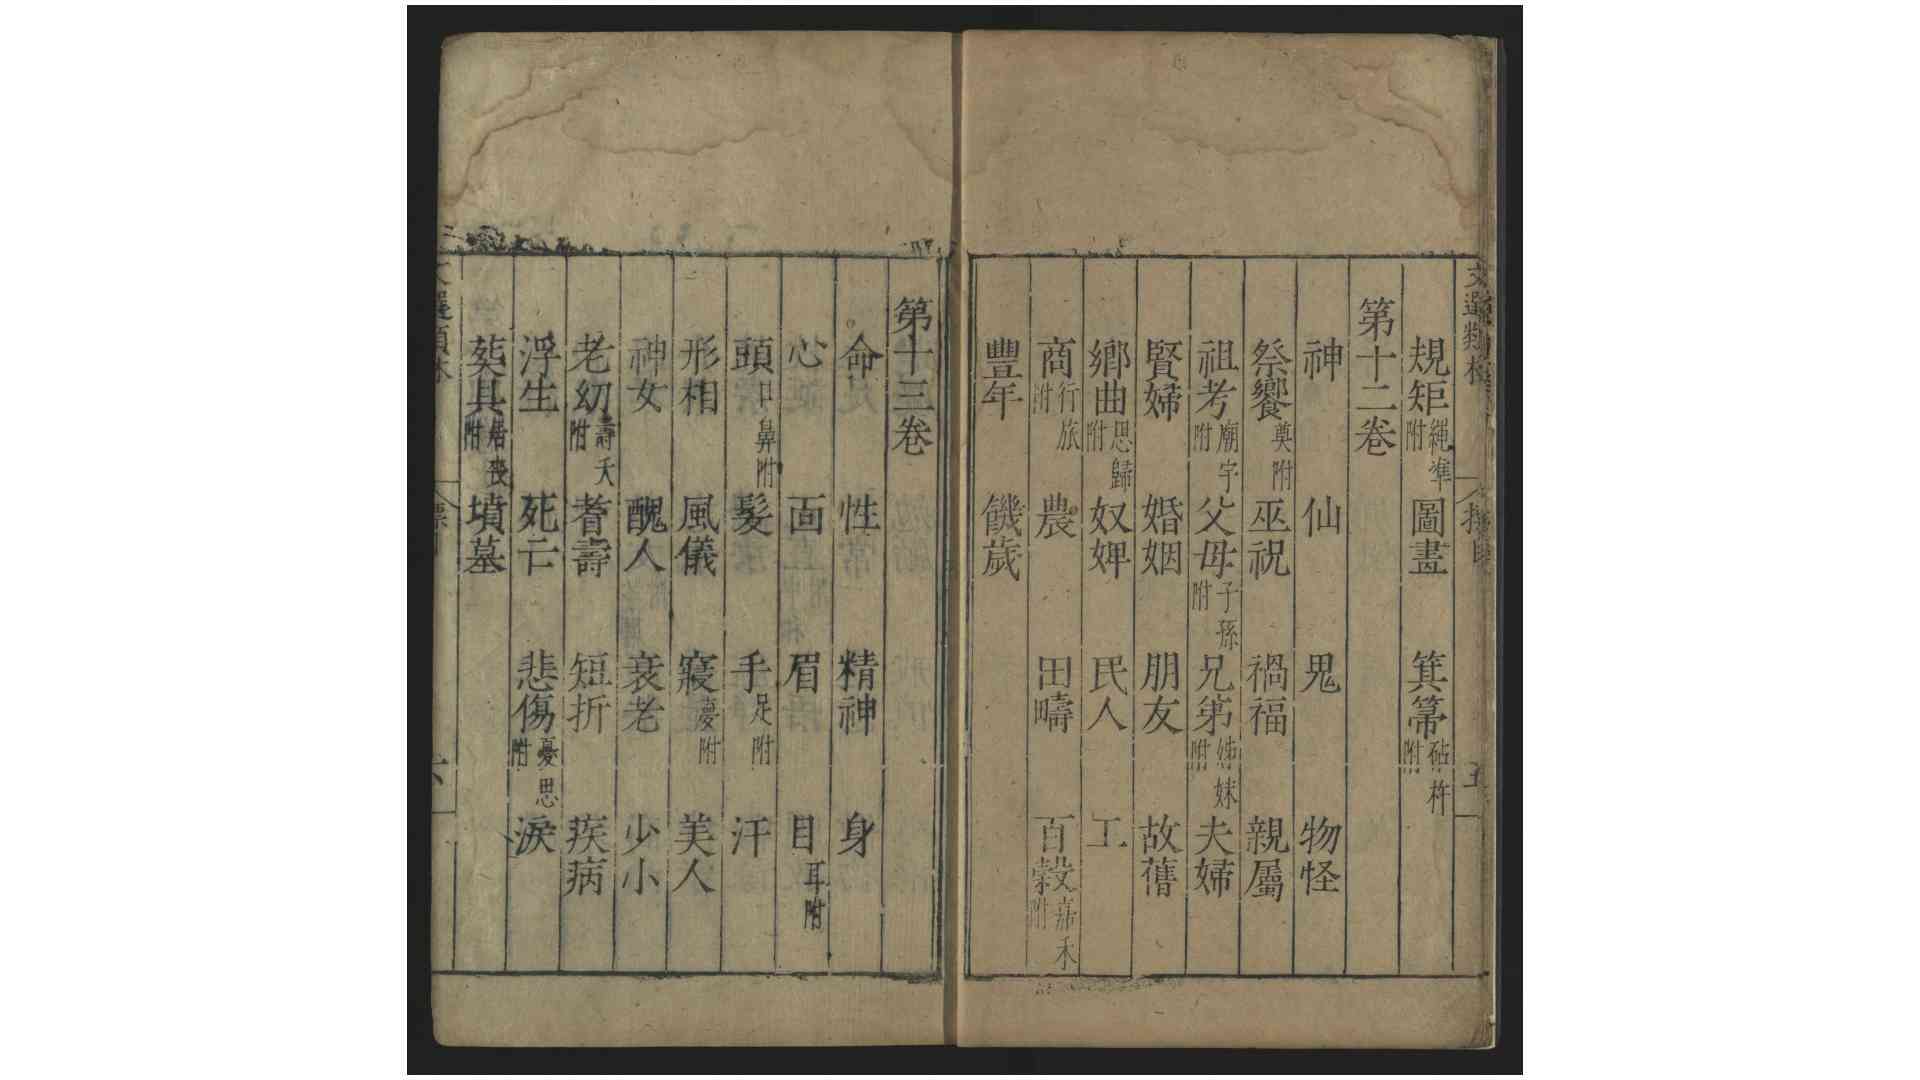 規矩繩準附 圖畫 箕箒砧杵附
第十二卷
神 仙 鬼 物怪
祭饗奠附 巫祝 禍福 親屬
祖考廟宇附 父母子孫附 兄弟姊妹附 夫婦
賢婦 婚姻 朋友 故舊
鄉曲思歸附 奴婢 民人 工
商行旅附 農 田疇 百穀嘉禾附
豐年 饑歲
第十三卷
命 性 精神 身
心 面 眉 目耳附
頭口鼻附 髮 手足附 汗
形相 風儀 寢夢附 美人
神女 醜人 衰老 少小
老幼壽夭附 耆壽 短折 疾病
浮生 死亡 悲傷憂思附 淚
葬具居喪附 墳墓